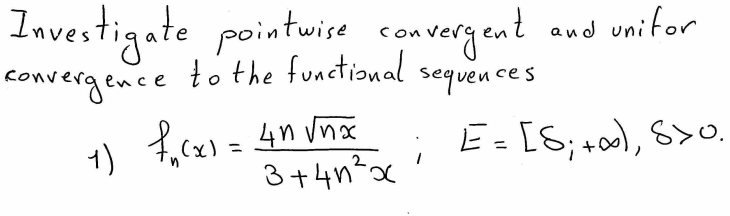 Investigate pointwise convergent and unifor
convergence to the functional sequences
1) fₙ(x) = 4n √(nx) / (3 + 4n²x) ; E = [δ; +∞), δ > 0.